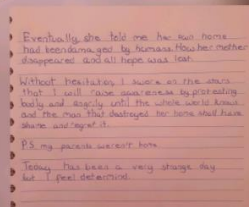 Eventually she told me her own home
had been damaged by humans How her mother
disappeared and all hope was lost.
Without hesitation I swore on the stars
that I will raise awareness by protesting
bodly and angrily until the whole world knows
and the man that destroyed her home shall have
shame and regret it.
P.S my parents weren't home
Today has been a very strange day
but I feel determind.